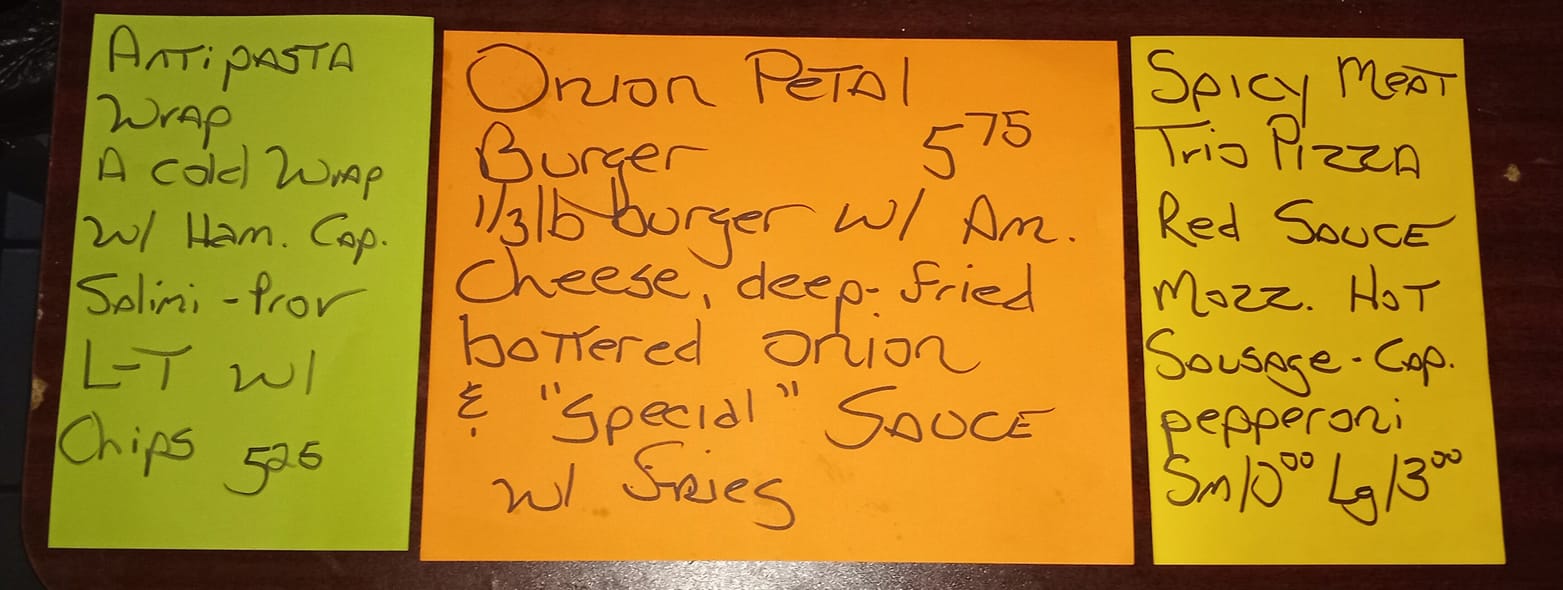 Antipasta
Wrap
A cold Wrap
w/ Ham. Cap.
Salimi - Prov
L-T w/
Chips 5 25
Onion Petal
Burger 5 75
1/3 lb burger w/ Am.
Cheese, deep-fried
battered onion
& "Special" Sauce
w/ Fries
Spicy Meat
Trio Pizza
Red Sauce
Mozz. Hot
Sausage - Cap.
pepperoni
Sm 10 00 Lg 13 00